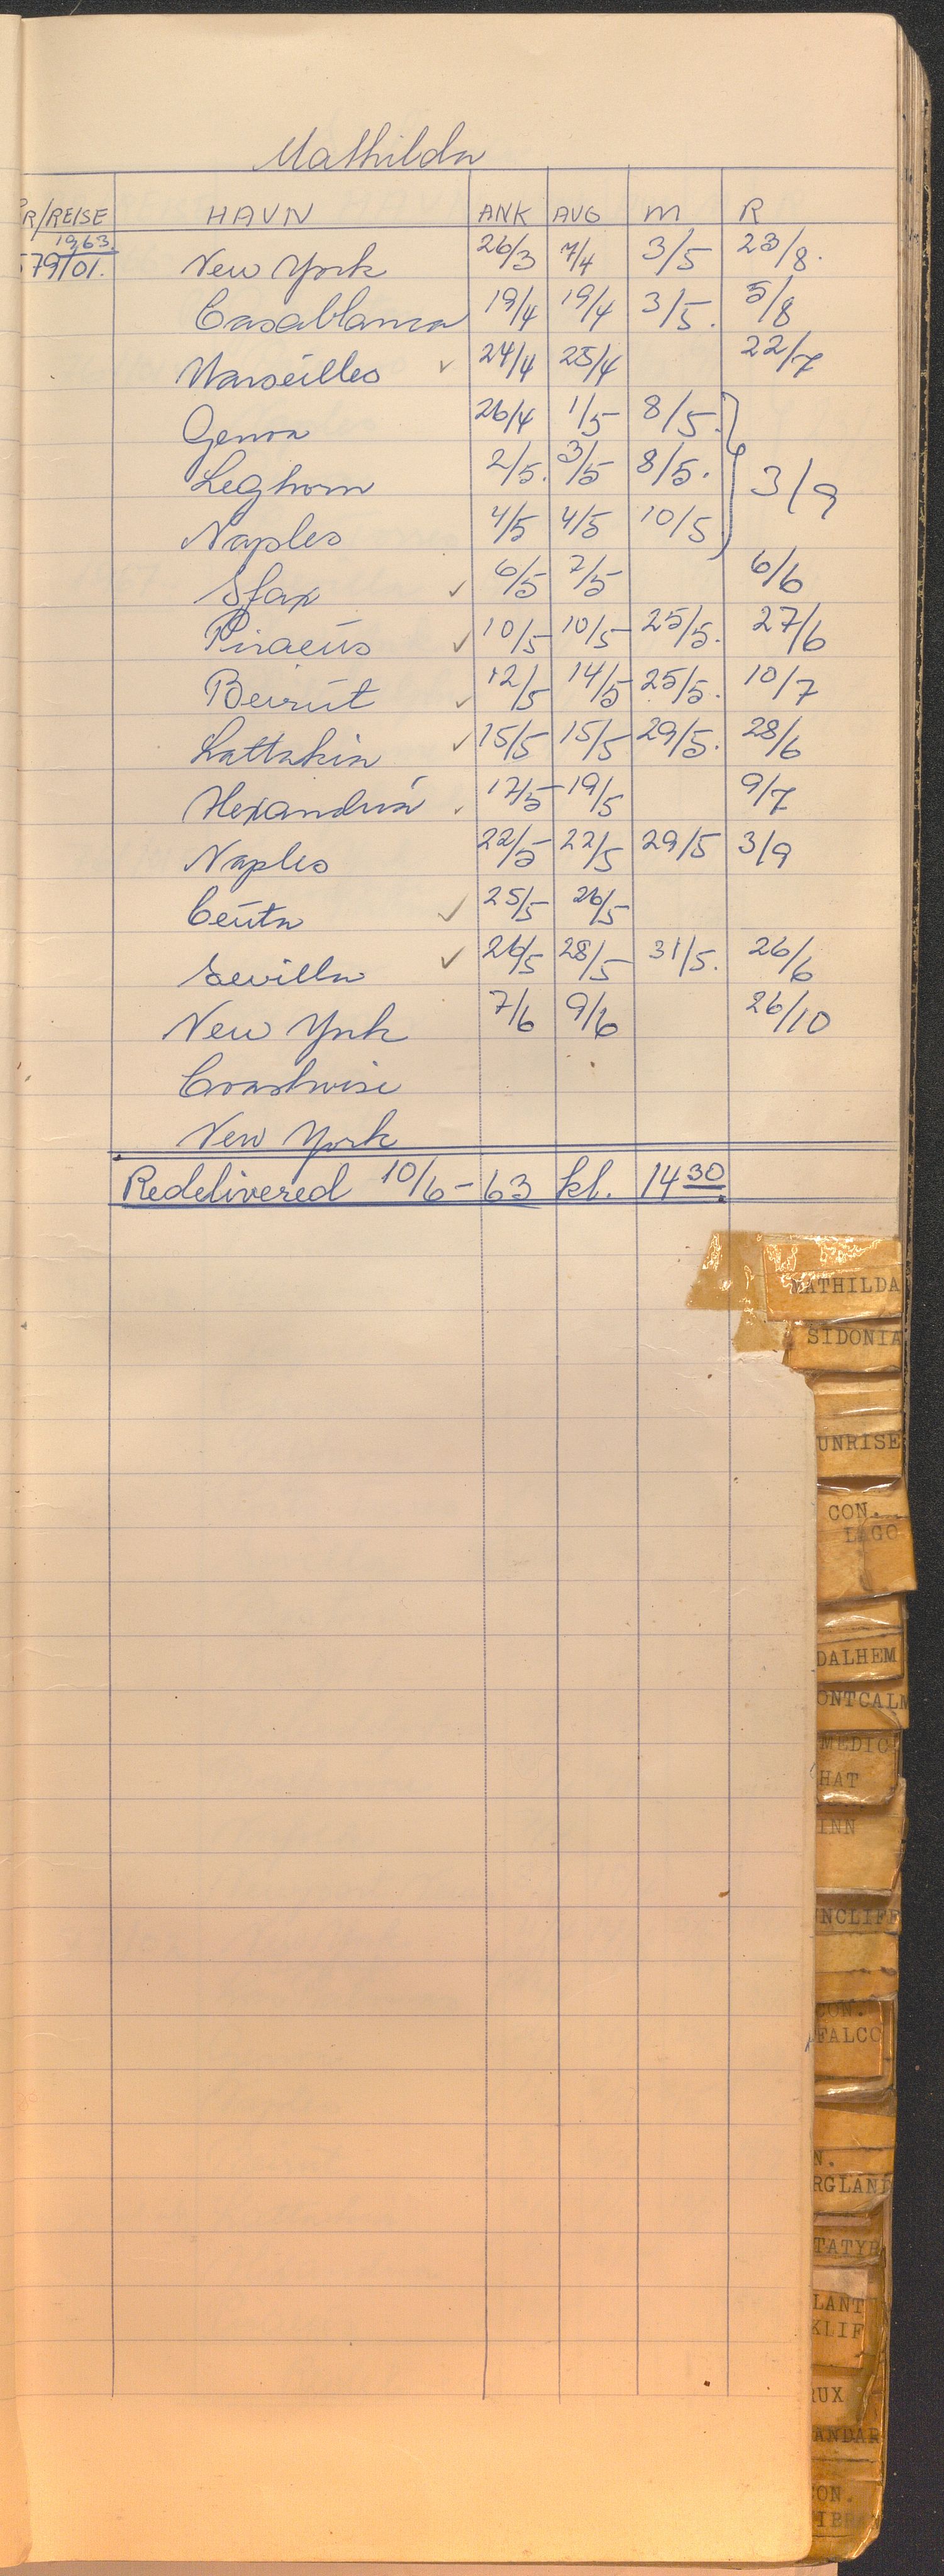 Mathilda
R/REISE HAVN ANK AVG M R
1963.
79/01. New York 26/3 7/4 3/5 23/8.
Casablanca 19/4 19/4 3/5. 5/8
Marseilles ✓ 24/4 25/4 22/7
Genoa 26/4 1/5 8/5.
Leghorn 2/5. 3/5 8/5. 3/9
Naples 4/5 4/5 10/5
Sfax ✓ 6/5 7/5 6/6
Piraeus ✓ 10/5 10/5 25/5. 27/6
Beirut ✓ 12/5 14/5 25/5. 10/7
Lattakia ✓ 15/5 15/5 29/5. 28/6
Alexandria 17/5 19/5 9/7
Naples 22/5 22/5 29/5 3/9
Ceuta ✓ 25/5 26/5
Sevilla ✓ 26/5 28/5 31/5. 26/6
New York 7/6 9/6 26/10
Coastwise
New York
Redelivered 10/6-63 kl. 14 30
MATHILDA
SIDONIA
UNRISE
CON.
LAGO
DALHEM
ONTCALM
MEDIC
HAT
INN
NCLIFF
CON.
FALCO
N.
RGLAND
TATYR
LANT
KLIF
RUX
ANDAR
CON.
IBR